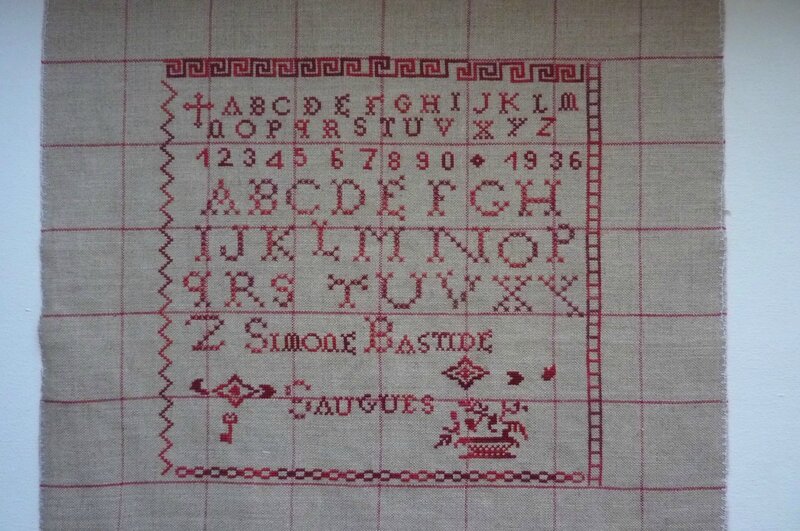 A B C D E F G H I J K L M
N O P Q R S T U V X Y Z
1 2 3 4 5 6 7 8 9 0 1936
A B C D E F G H
I J K L M N O P
Q R S T U V X Y
Z SIMONE BASTIDE
SAUGUES